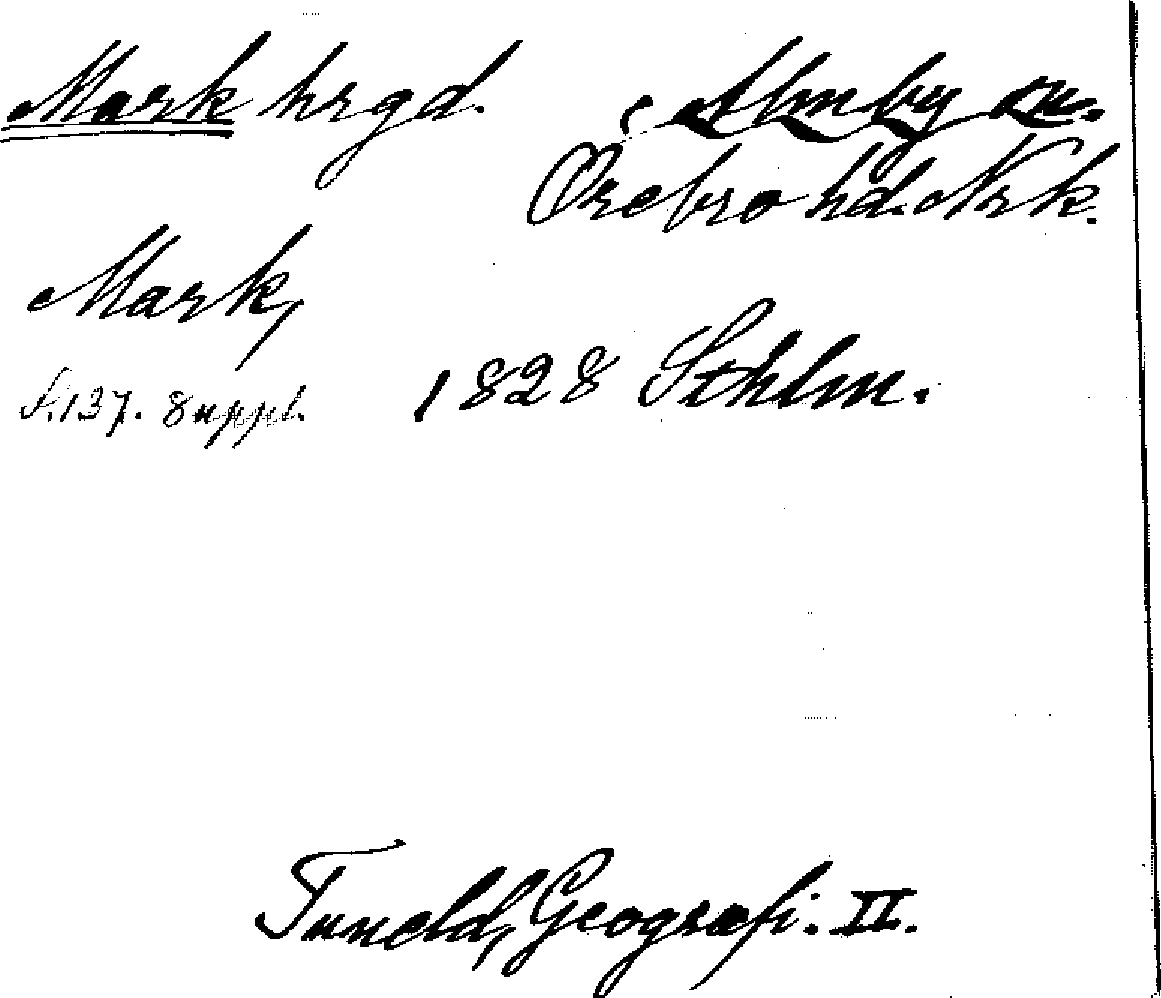 Mark hrgd. Almby sn.
Örebro hd. Nrk.
Mark,
S. 137. Suppl. 1828 Sthlm.
Tuneld, Geografi. II.